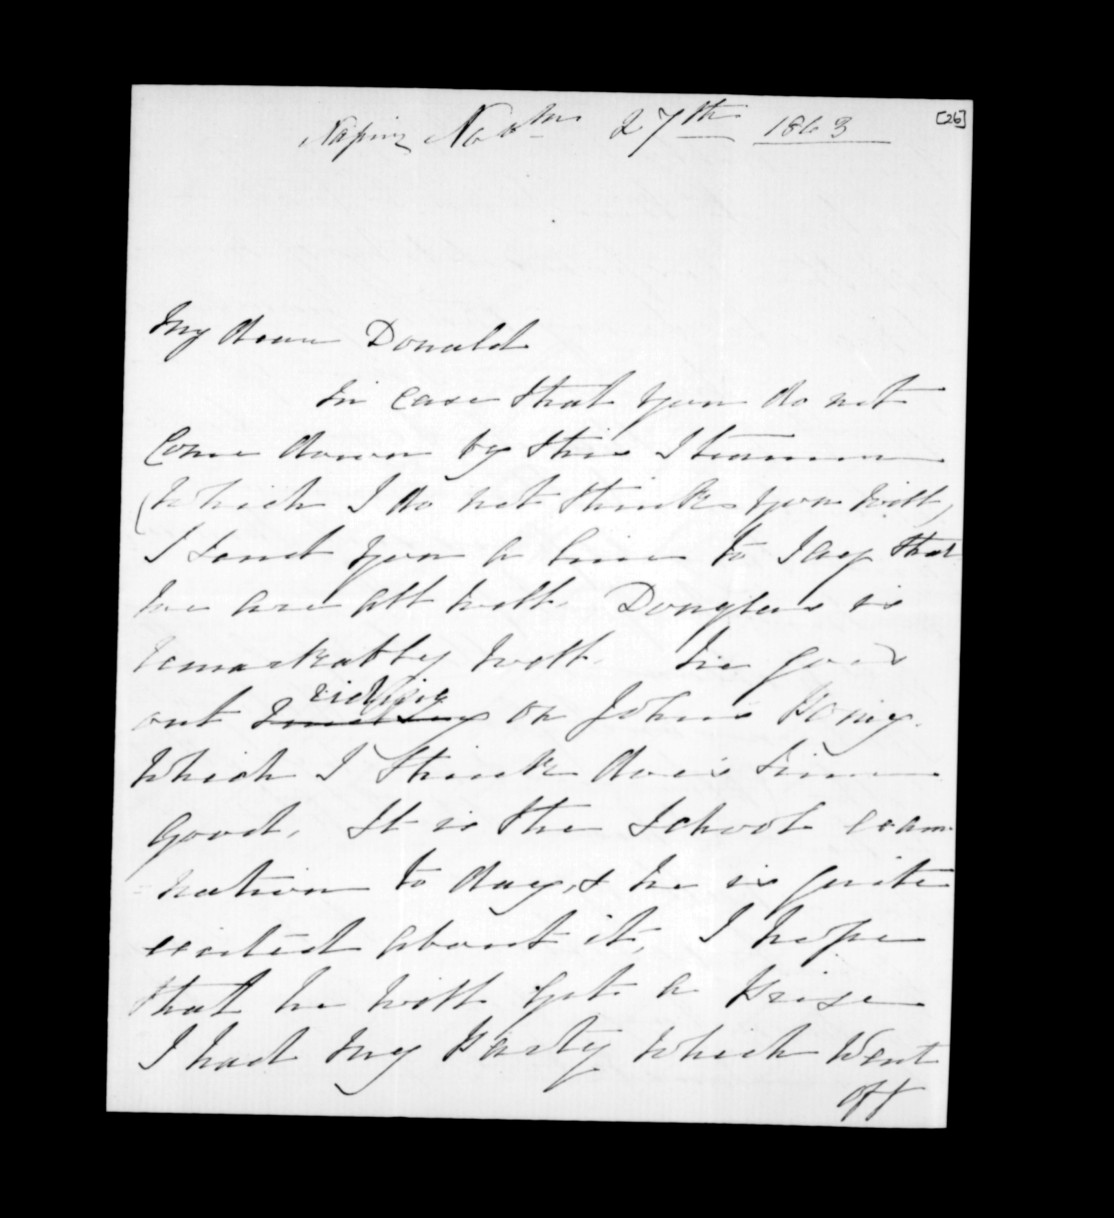 [26]
Napier Novbr 27th 1863
My dear Donald
In case that you do not
Come down by this Steamer
(Which I do not think you will)
I send you a line to Say that
we are all well. Douglas is
remarkably well. he goes
out riding on John's Poney.
Which I think does him
good. It is the School exam
=nation to day, & he is quite
excited about it, I hope
that he will get a Prise
I had my Party which Went
off